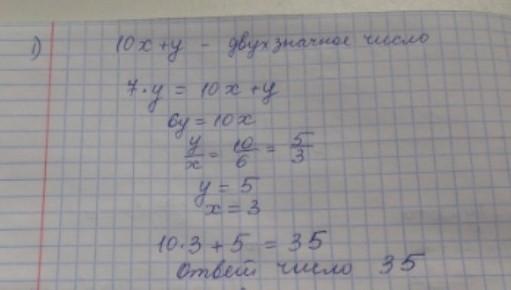 1) 10x+y - двухзначное число
7·y = 10x+y
6y = 10x
y/x = 10/6 = 5/3
y = 5
x = 3
10·3+5 = 35
Ответ число 35